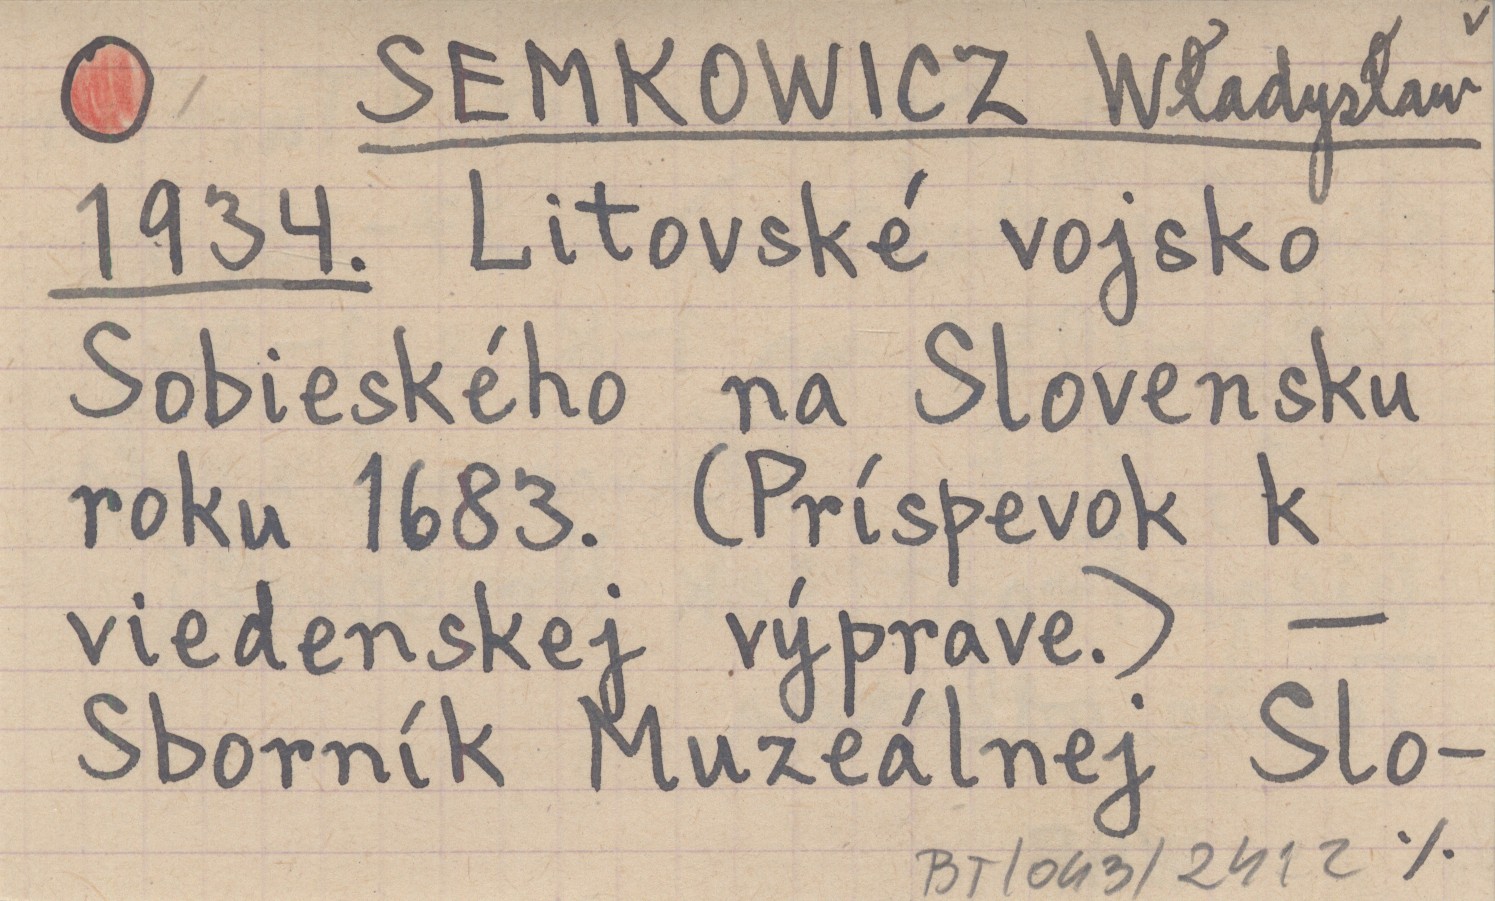 SEMKOWICZ Władysław
1934. Litovské vojsko
Sobieského na Slovensku
roku 1683. (Príspevok k
viedenskej výprave.) —
Sborník Muzeálnej Slo-
BT/043/2412 ·/.